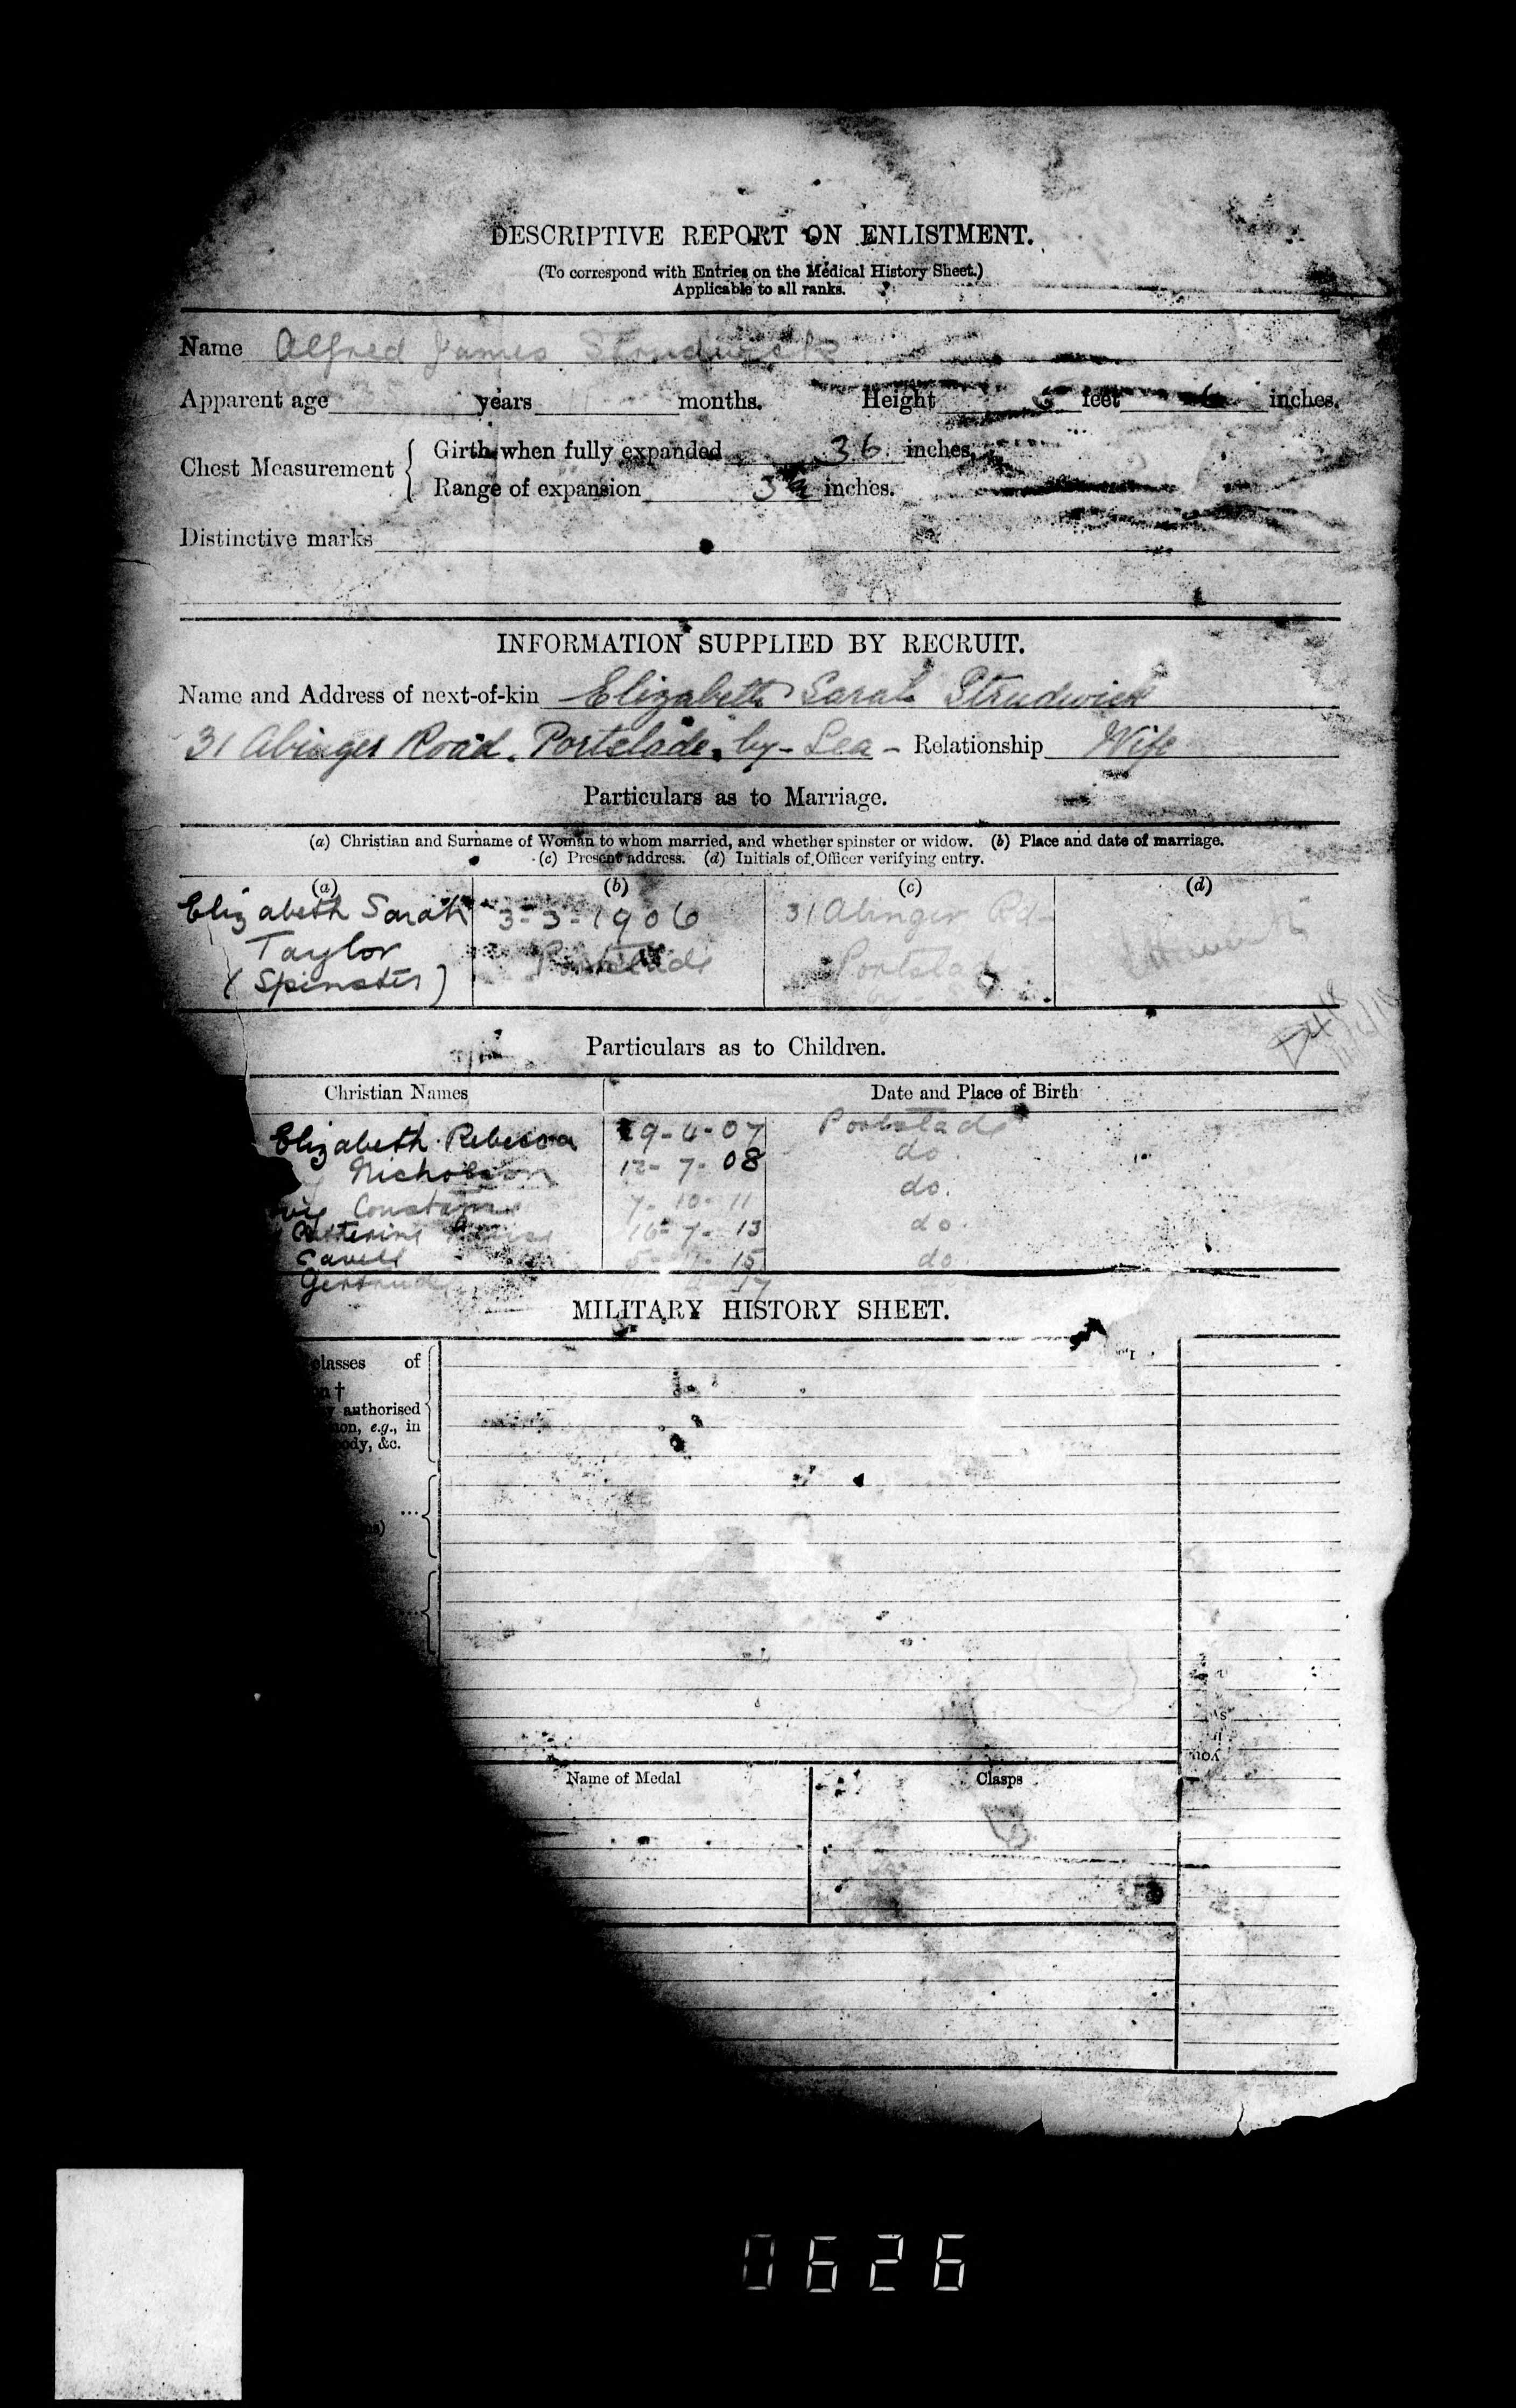 DESCRIPTIVE REPORT ON ENLISTMENT.
(To correspond with Entries on the Medical History Sheet.)
Applicable to all ranks.
Name Alfred James Strudwick
Apparent age years months. Height 5 feet 6 inches.
Chest Measurement { Girth when fully expanded 36 inches.
Range of expansion 3½ inches.
Distinctive marks
INFORMATION SUPPLIED BY RECRUIT.
Name and Address of next-of-kin Elizabeth Sarah Strudwick
31 Abinger Road. Portslade. by-Sea - Relationship Wife
Particulars as to Marriage.
(a) Christian and Surname of Woman to whom married, and whether spinster or widow. (b) Place and date of marriage.
(c) Present address. (d) Initials of Officer verifying entry.
(a) (b) (c) (d)
Elizabeth Sarah 3-3-1906 31 Abinger Rd-
Taylor Portslade Portslad
(Spinster) by-S
Particulars as to Children.
Christian Names Date and Place of Birth
Elizabeth Rebecca 9-4-07 Portslade
Nicholson 12-7-08 do.
Constance 7-10-11 do.
Catherine 16-7-13 do.
Cavell 15 do
Gertrude 17
MILITARY HISTORY SHEET.
classes of
n †
y authorised
ion, e.g., in
body, &c.
...
ns)
...
Name of Medal Clasps
0626